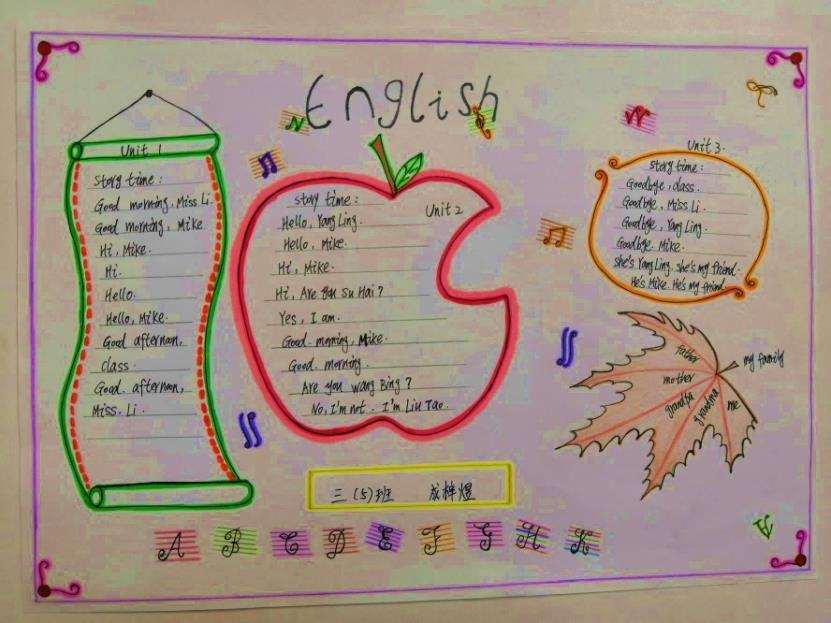 English
Unit 1
Story time:
Good morning, Miss Li.
Good morning, Mike
Hi, Mike.
Hi.
Hello.
Hello, Mike.
Good afternoon,
class.
Good. afternoon,
Miss. Li.
story time:
Unit 2
Hello, Yang Ling.
Hello, Mike.
Hi, Mike.
Hi, Are you Su Hai?
Yes, I am.
Good. morning, Mike.
Good. morning.
Are you wang Bing?
No, I'm not. I'm Liu Tao.
Unit 3.
story time:
Goodbye, class.
Goodbye, Miss Li.
Goodbye, Yang Ling.
Goodbye. Mike.
she's Yang Ling. she's my friend.
He's Mike. He's my friend
father
mother
grandpa
grandma
me
my family
三(5)班 成梓煜
A B C D E F G H K